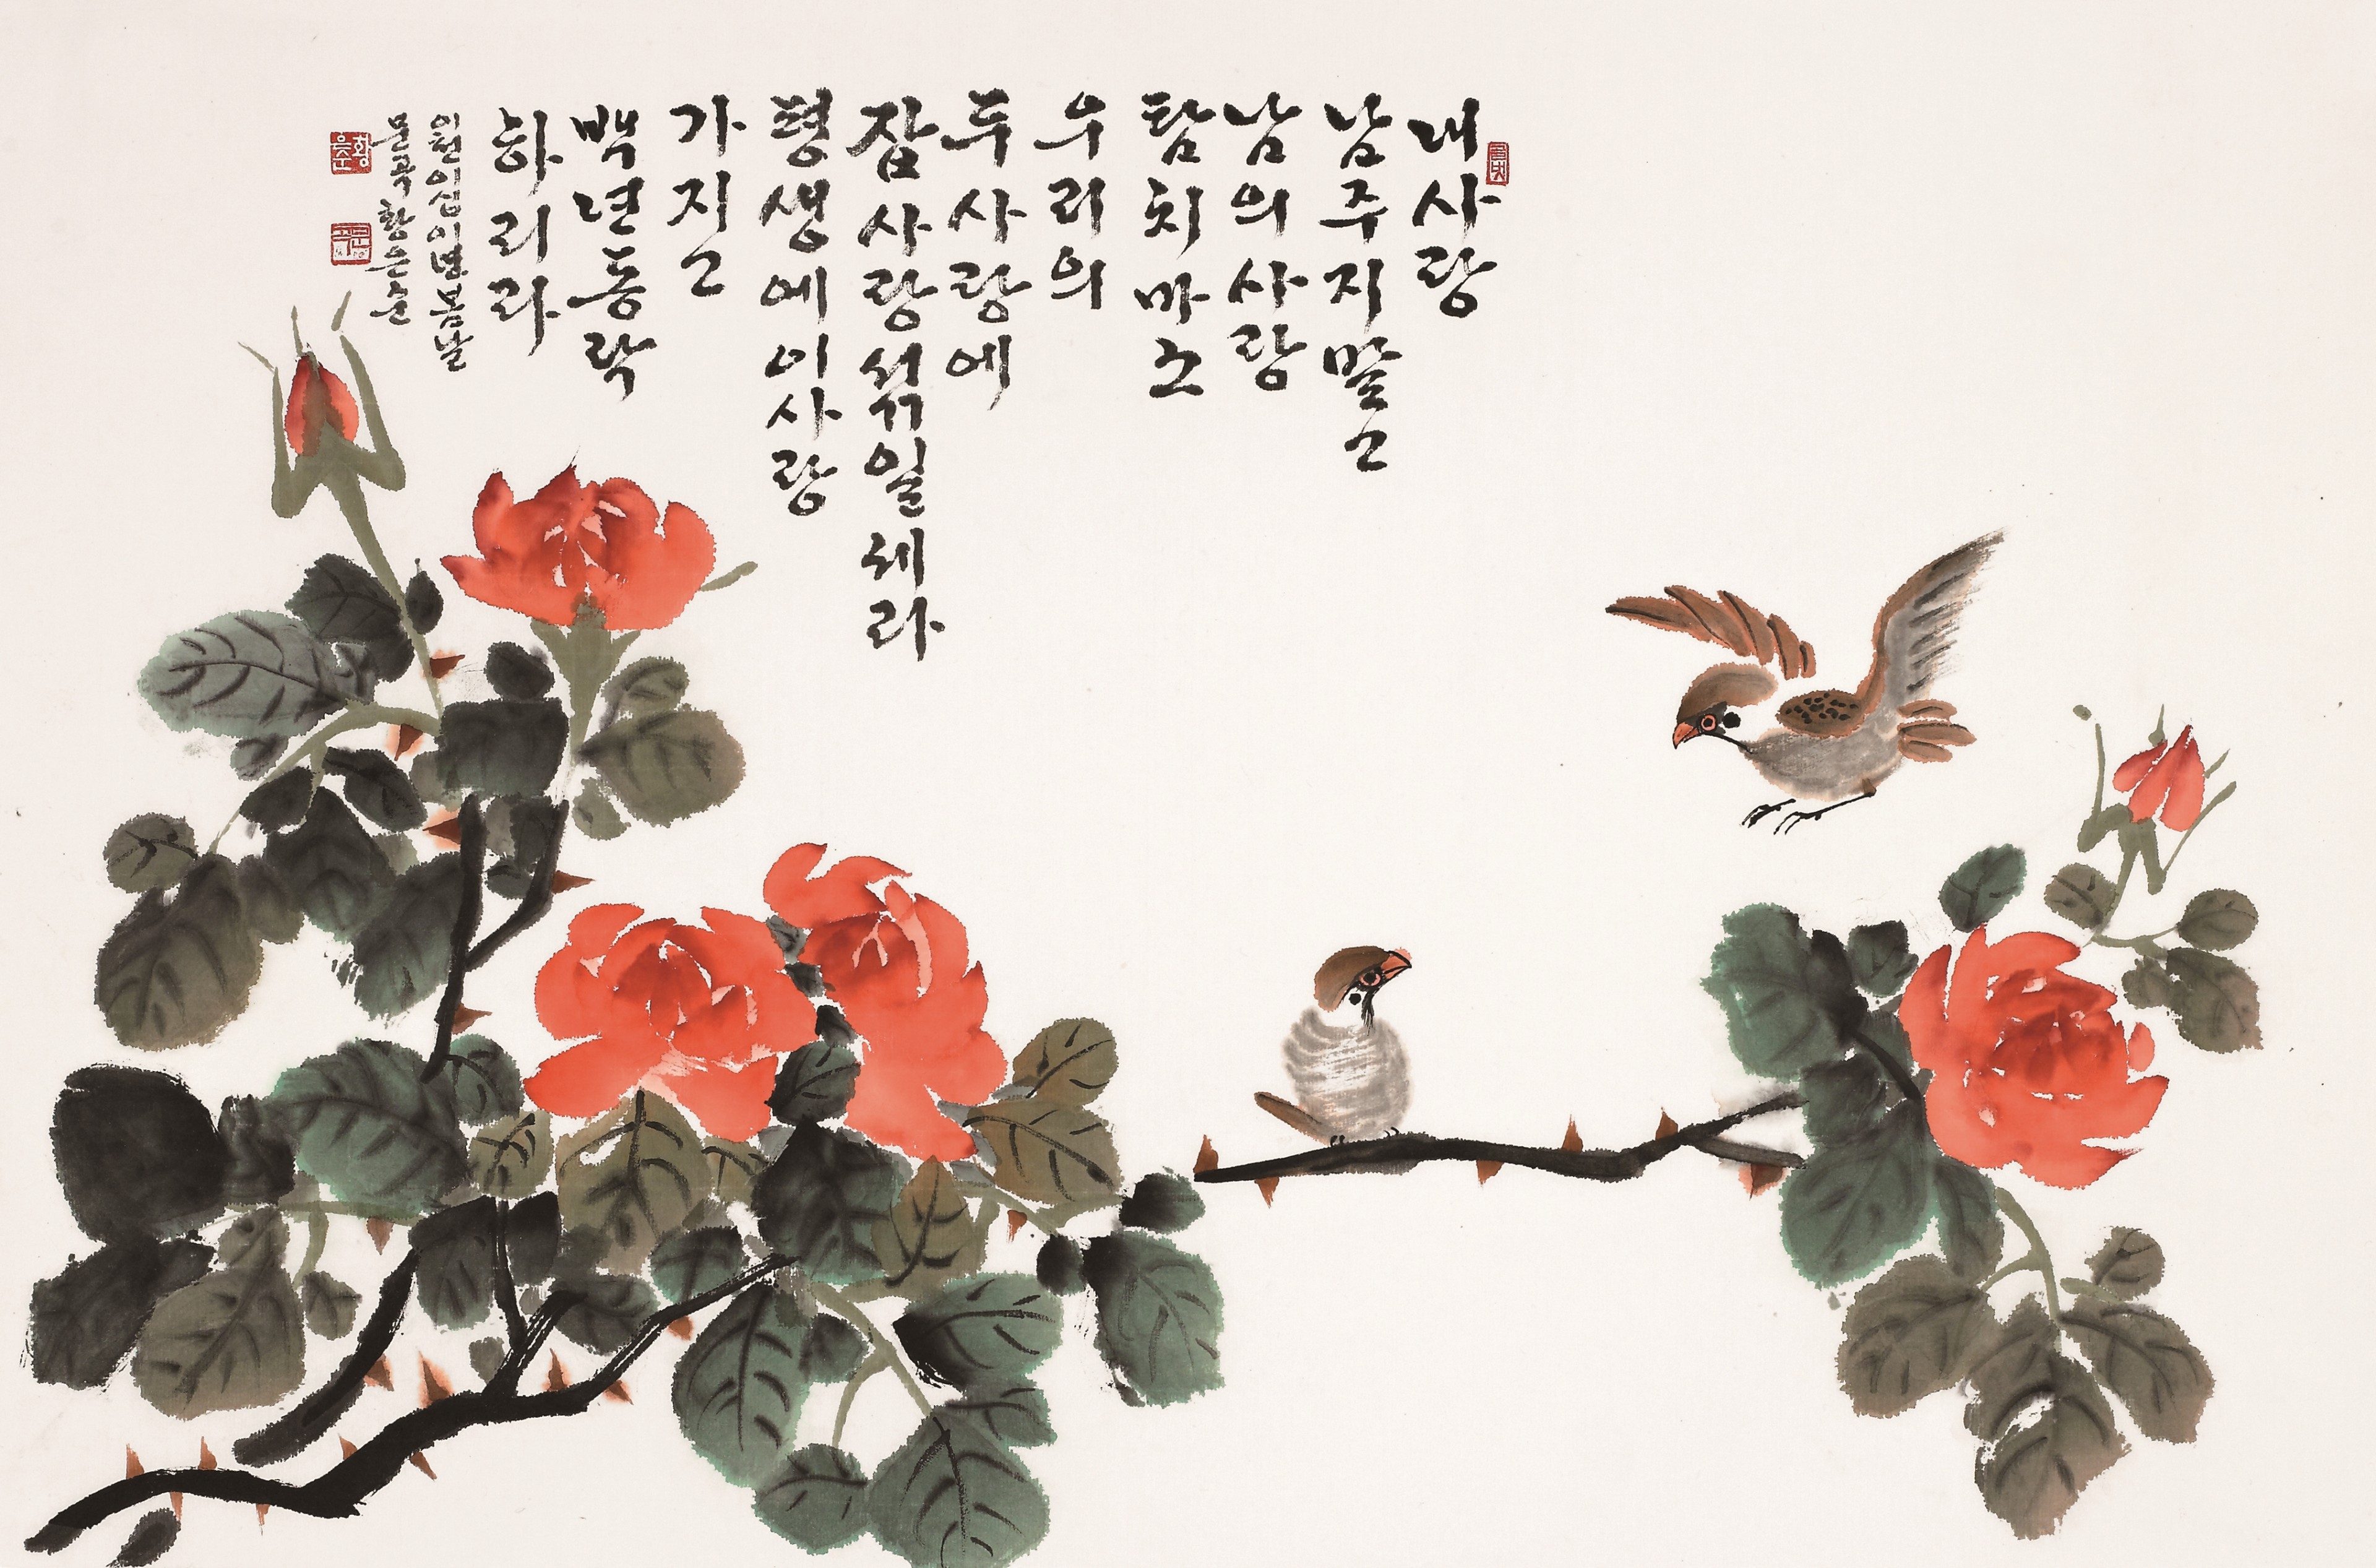 내사랑
남주지말고
남의사랑
탐치마소
우리의
두사랑에
잡사랑섞일세라
평생에이사랑
가지고
백년동락
하리라
이천이십이년봄날
문곡황은순
황은순
문곡